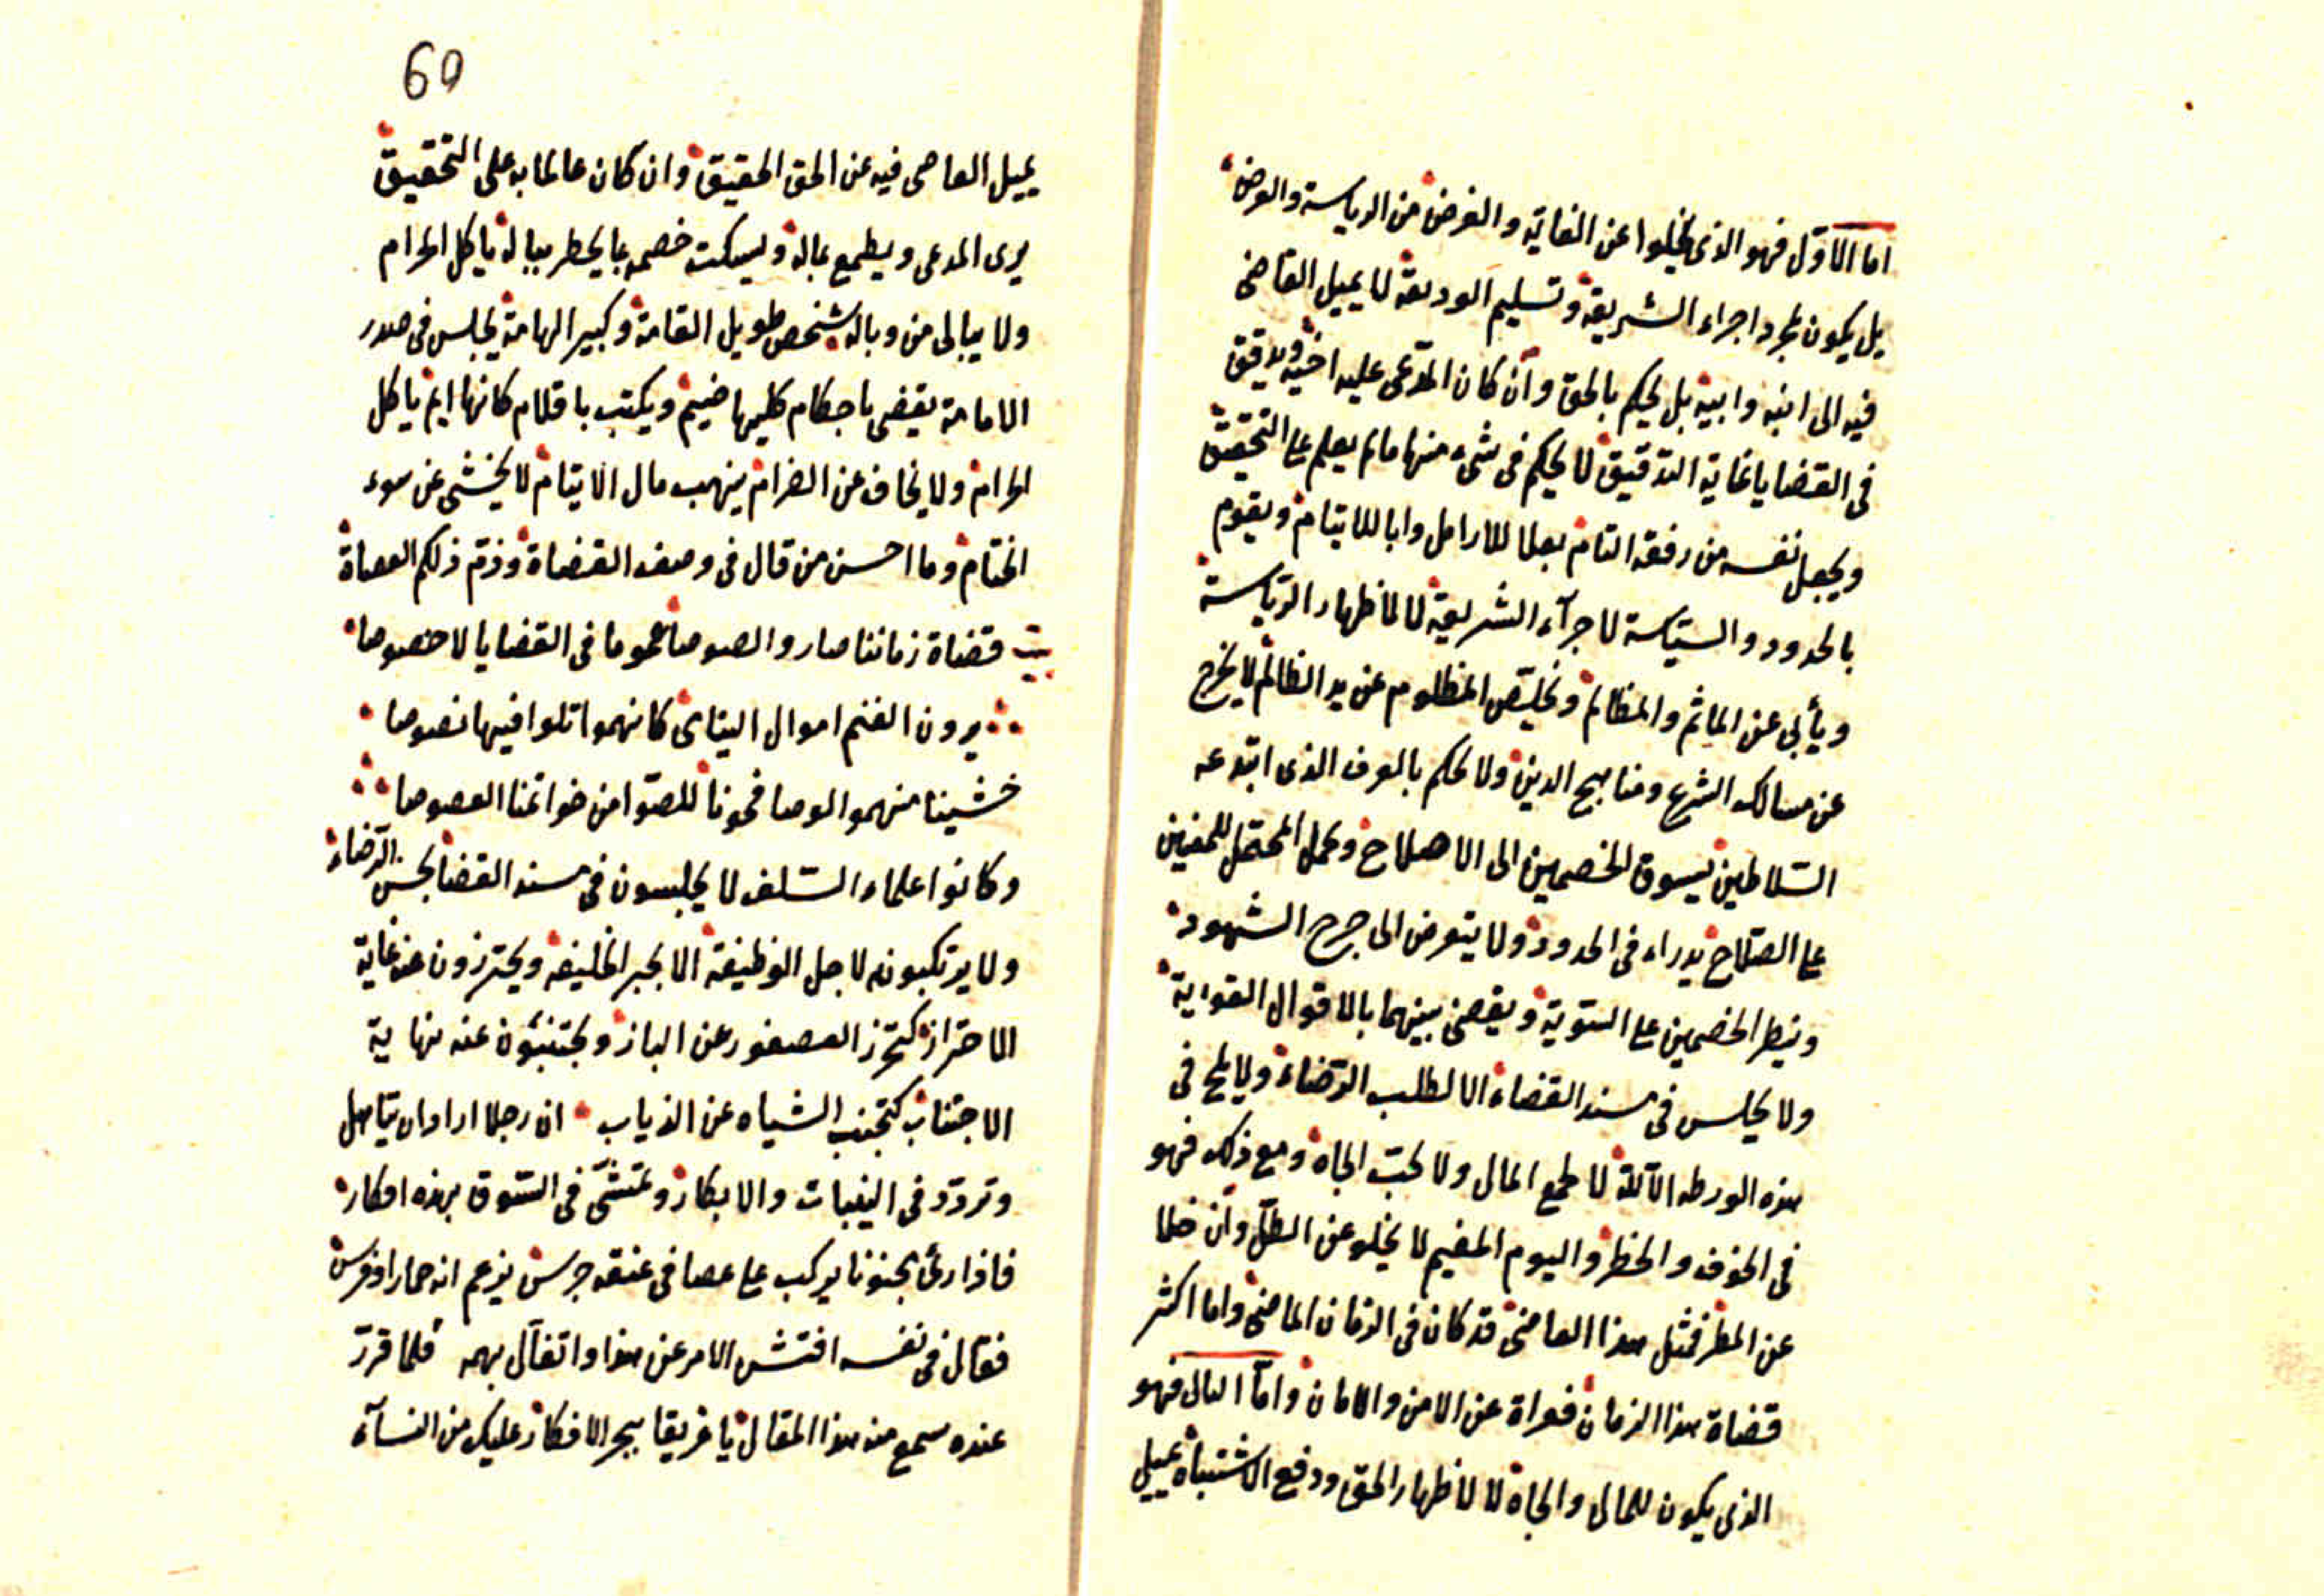 اما الاوّل فهو الذى يخلوا عن الغاية والغرض من الرياسة والعرض
بل يكون لمجرد اجراء الشريعة وتسليم الوديعة لا يميل القاضى
فيه الى ابنه وابيه بل يحكم بالحق وان كان المدّعى عليه اخيه ويدقق
فى القضايا غاية التدقيق لا يحكم فى شىء منها مالم يعلم على التحقيق
ويجعل نفسه من رفقه التام بعلا للارامل وابا للايتام ويقوم
بالحدود والسيّاسة لاجرآء الشريعة لا لاظهار الريّاسة
ويأبى عن المآثم والمظالم وتخليص المظلوم عن يد الظالم لا يخرج
عن مسالك الشرع ومناهج الدين ولا يحكم بالعرف الذى ابتدعه
السّلاطين يسوق الخصمين الى الاصلاح وحمل المحتمل للمعنيين
على الصّلاح يدراء فى الحدود ولا يتعرض الى جرح الشهود
وينظر الخصمين على السّويّة ويقضى بينهما بالاقوال القوية
ولا يجلس فى مسند القضاء الا لطلب الرّضاء ولا يلج فى
هذه الورطه لا لطمع المال ولا لحبّ الجاه ومع ذلك فهو
فى الخوف والخطر واليوم المغيم لا يخلو عن الطلّ وان خلا
عن المطر فمثل هذا القاضى قد كان فى الزمان الماضى واما اكثر
قضاة هذا الزمان فعراة عن الامن والامان وامّا الثانى فهو
الذى يكون للمال والجاه لا لاظهار الحق ودفع الاشتباه يميل
60
يميل القاضى فيه عن الحق الحقيق وان كان عالما به على التحقيق
يرى المدعى ويطمع بماله ويسكت خصمه بما يخطر بباله ياكل الحرام
ولا يبالى من وباله شخص طويل القامة وكبير الهامة يجلس فى صدر
الامامة يقضى باحكام كليها ضيم ويكتب باقلام كانها ايم ياكل
الحرام ولا يخاف عن الضرام ينهب مال الايتام لا يخشى عن سوء
الختام وما احسن من قال فى وصف القضاة وذم ذلكم العصاة
بيت قضاة زماننا صاروا لصوصا عموما فى القضايا لا خصوصا
يرون الغنم اموال اليتامى كانهموا تلوا فيها نصوصا
خشينا منهموا لو صافحونا للصّوا من خواتمنا الفصوصا
وكانوا علماء السّلف لا يجلسون فى مسند القضا بحسن الرّضاء
ولا يرتكبونه لاجل الوظيفة الا بجبر الخليفه ويحترزون عنه غاية
الاحتراز كتحرّز العصفور عن الباز ويجتنبون عنه نهاية
الاجتناب كتجنب الشياه عن الذياب ان رجلا اراد ان يتاهل
وتردّد فى الثيبات والابكار وتمشّى فى السّوق بهذه افكار
فاذا رئى مجنونا يركب على عصا فى عنقه جرس يزعم انه حمار او فرس
فقال فى نفسه افتش الامر عن هذا واتفآل بهمه فلما قرّر
عنده سمع منه هذا المقال يا غريقا ببحر الافكار عليك من النسآء